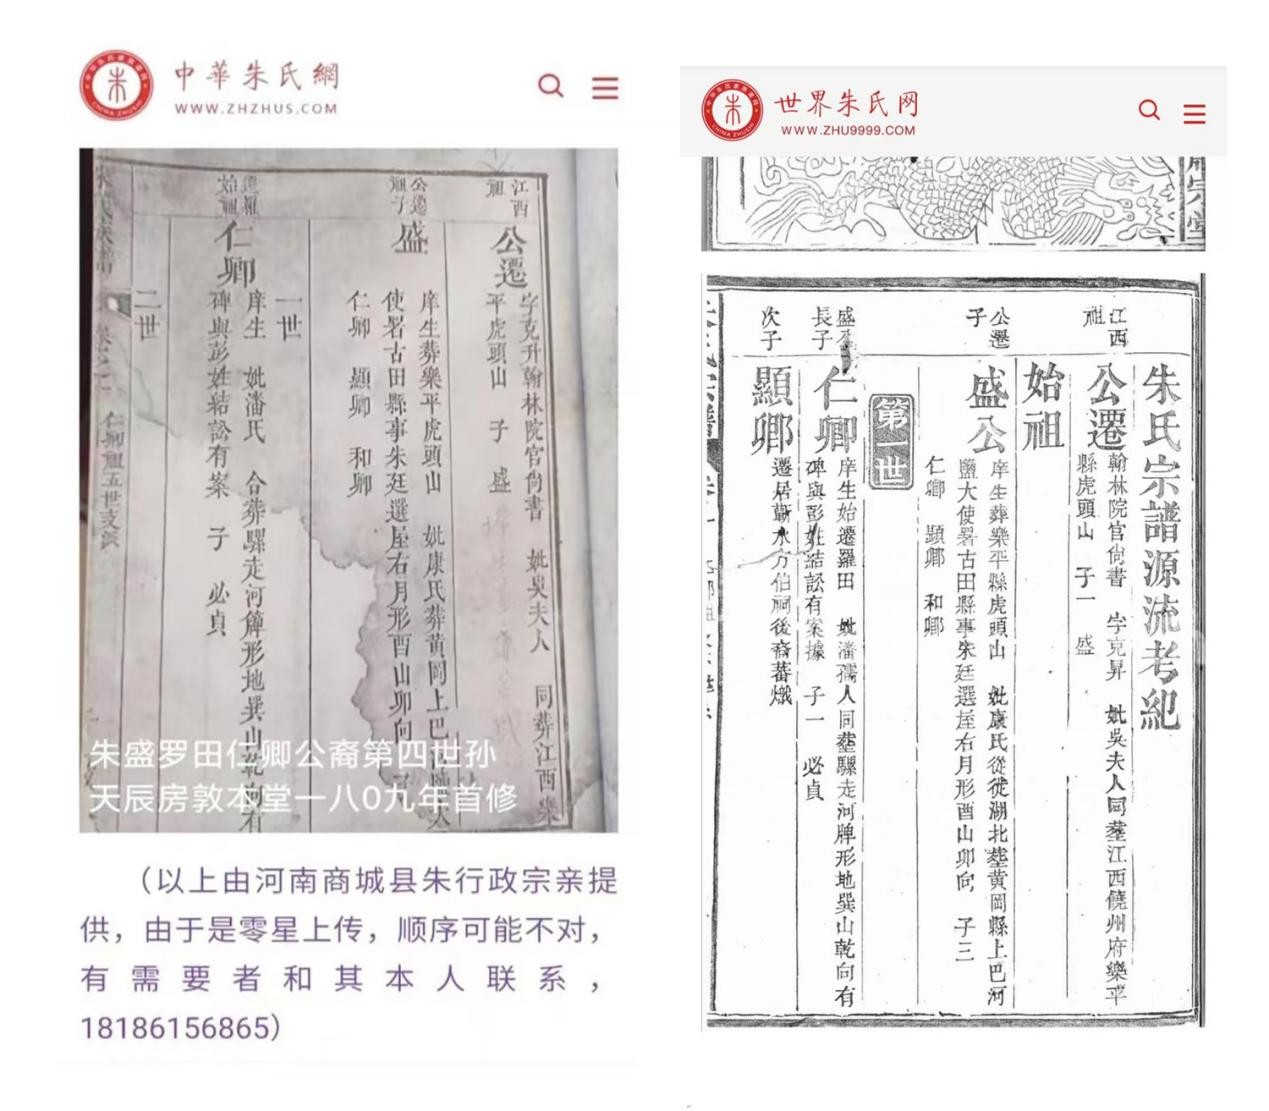 中華朱氏網
WWW.ZHZHUS.COM
江西
祖
公遷
字克升翰林院官尙書 妣吳夫人 同葬江西樂
平虎頭山 子 盛
公遷
祖子
盛
庠生葬樂平虎頭山 妣康氏葬黄岡上巴
使署古田縣事朱廷選屋右月形酉山卯向
仁卿 顯卿 和卿
一世
遷羅
始祖
仁卿
庠生 妣潘氏 合葬騾走河簰形地巽山乾向有
碑與彭姓結訟有案 子 必貞
二世
仁卿祖五世支派
朱盛罗田仁卿公裔第四世孙
天辰房敦本堂一八0九年首修
（以上由河南商城县朱行政宗亲提
供，由于是零星上传，顺序可能不对，
有需要者和其本人联系，
18186156865）
世界朱氏网
WWW.ZHU9999.COM
朱氏宗譜源流考紀
江西
祖
公遷
翰林院官尙書 字克昇 妣吳夫人同塟江西饒州府樂平
縣虎頭山 子一 盛
始祖
公遷
子
盛公
庠生葬樂平縣虎頭山 妣康氏從徙湖北塟黄岡縣上巴河
鹽大使署古田縣事朱廷選屋右月形酉山卯向 子三
仁卿 顯卿 和卿
第一世
盛公
長子
仁卿
庠生始遷羅田 妣潘孺人同塟騾走河牌形地巽山乾向有
碑與彭姓結訟有案據 子一 必貞
次子
顯卿
遷居蘄水方伯祠後裔蕃熾